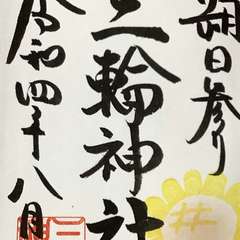 朔日参り
三輪神社
令和四年八月